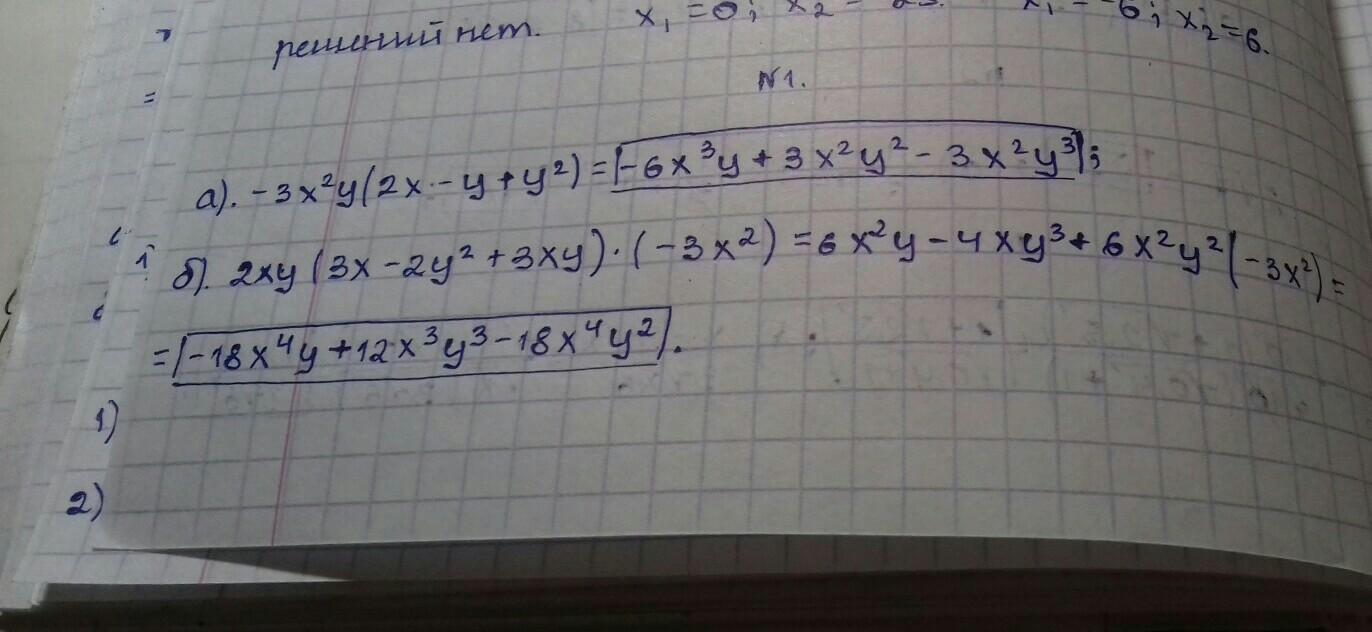 решений нет. x₁=0; x₂ = 6; x₂=6.
N1.
а). -3x²y(2x-y+y²)=-6x³y+3x²y²-3x²y³;
б). 2xy(3x-2y²+3xy)·(-3x²)=6x²y-4xy³+6x²y²(-3x²)=
=-18x⁴y+12x³y³-18x⁴y².
1)
2)